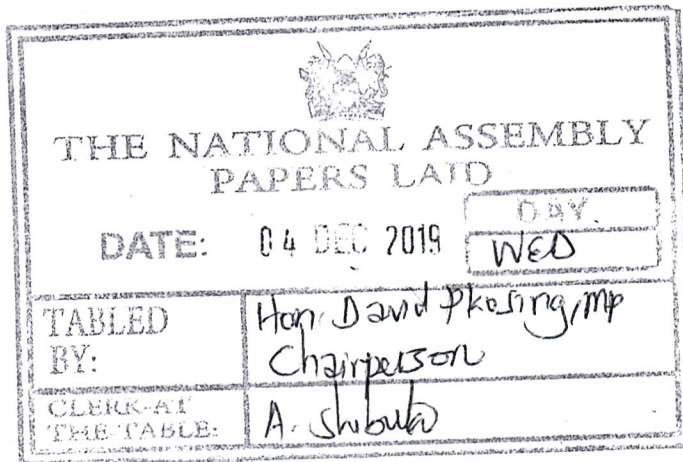 THE NATIONAL ASSEMBLY
PAPERS LAID
DATE: 04 DEC 2019
DAY.
WED
TABLED BY:
Hon. David Pkosing, MP
Chairperson
CLERK-AT THE-TABLE:
A. Shibuko